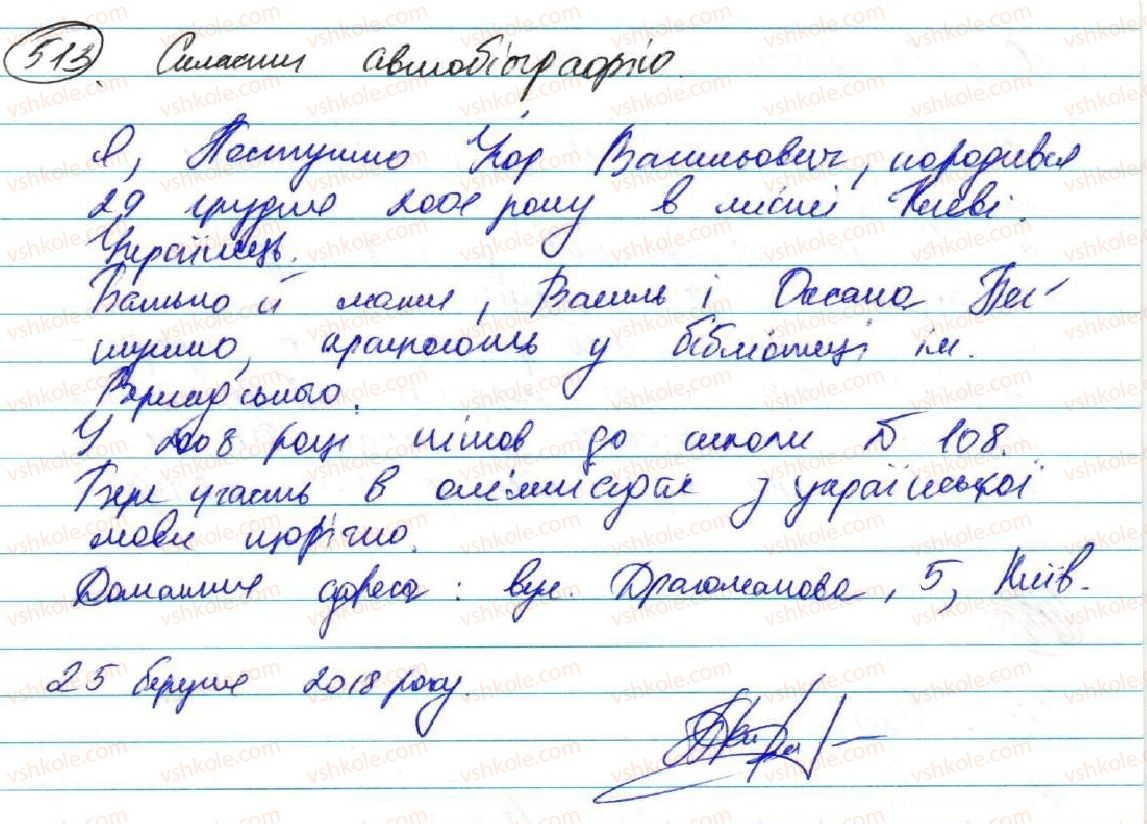 513. Скласти автобіографію.
Я, Пастушко Ігор Васильович, народився
29 грудня 2001 року в місті Києві.
Українець.
Батько й мати, Василь і Оксана Пас-
тушко, працюють у бібліотеці ім.
Вернадського.
У 2008 році пішов до школи № 108.
Беру участь в олімпіадах з української
мови щорічно.
Домашня адреса: вул. Драгоманова, 5, Київ.
25 березня 2018 року.
vshkole.com